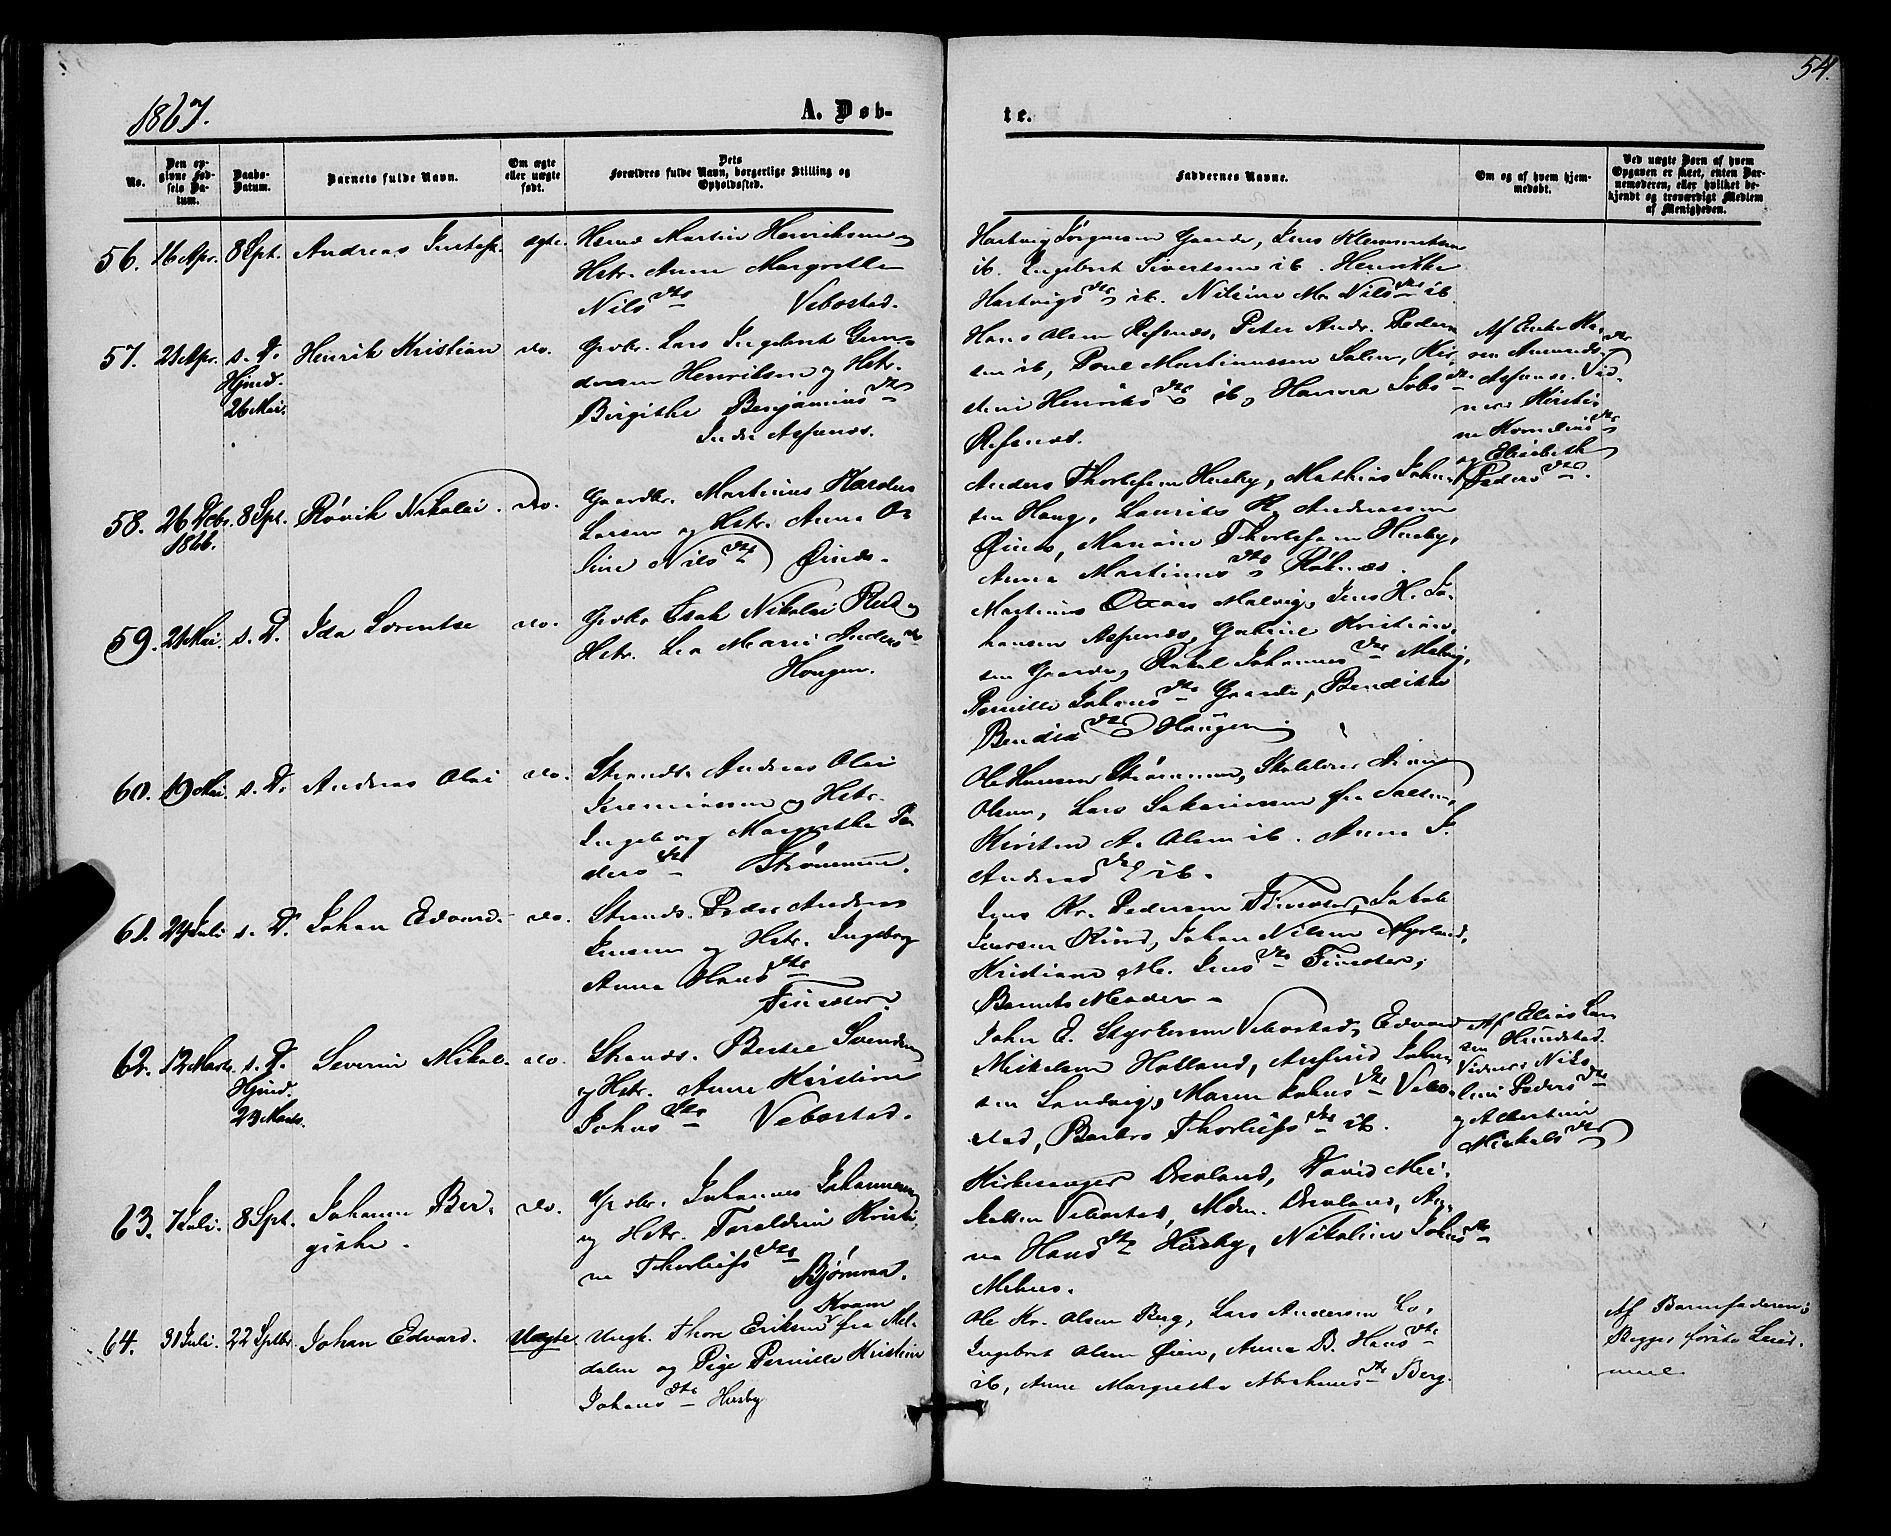 54.
1867.
A. Døb-
te.
No.
Den op-
givne Fød-
sels Da-
tum.
Daabs-
Datum.
Barnets fulde Navn.
Om ægte
eller uægte
født.
Dets
Forældres fulde Navn, borgerlige Stilling og
Opholdssted.
Faddernes Navne.
Om og af hvem hjem-
medøbt.
Ved uægte Børn af hvem
Opgaven er skeet, enten Bar-
nemoderen, eller hvilket be-
kjendt og troværdigt Medlem
af Menigheden.
56. 16 Apr. 8 Spt. Andreas ægte.
Martin Henriksen og
Hstr. Anne Margrethe
Nilsdtr Vebostad.
Hartvig Jørgensen Gaarde, Jens Klemmetsen
ib. Ingebort Sivertsen ib. Henrikke
Hartvigsdtr ib. Nilsine M. Nilsdtr ib.
57. 21 Apr. s. D. Henrik Kristian do.
Hjmd.
26 Mai.
Grdbr. Lars Ingebrt Gun-
dersen Henriksen og Hstr.
Birgithe Benjaminsdtr
Indre Aspenes.
Hans Olsen Refsnæs, Peter Andr. Peder-
sen ib, Povl Martinussen Salen, Kir-
stine Henriksdtr ib, Hanna Jobsdtr
Refsnæs.
Af Enke Ka-
ren Amundsdtr
Aspenæs. Vid-
ner: Kirsti-
ne Korneliusdtr
og Elisabeth
Pedersdtr.
58. 26 Debr. 8 Spt. Róvik Nikolai. do.
1866.
Gaardbr. Martinus Harder
Larsen og Hstr. Anna O-
line Nilsdtr Øines.
Anders Thorlefsen Husby, Mathias Johan-
sen Haug, Laurits H. Andreassen
Øines, Mariane Thorlefsen Husby,
Anna Martinusdtr Róknæs.
59. 21 Mai. s. D. Ida Lorentse do.
Grdbr Isak Nikolai Plid og
Hstr. Lea Marie Andersdtr
Hougen.
Martinus Malvig, Jens H. Jo-
hansen Aspenæs, Gabriel Kristian-
sen Gaarde, Rakel Johannesdtr Malvig,
Pernille Johansdtr Gaarde, Bendikte
Haugen
60. 19 Mai. s. D. Andreas Olai do.
Strands. Andreas Olai
Jeremiassen og Hstr.
Ingeborg Margrethe Pe-
dersdtr Strømmen.
Ole Hansen Strømmen,
Olsen, Lars Sakariassen fra Salten,
Kirsten A. Olsen ib. Anne J.
Andreasdtr ib.
61. 24 Juli s. D. Johan Edvard. do.
Strands. Peder Andreas
Jensen og Hstr. Ingeborg
Anna Hansdtr
Finsæter.
Jens Kr. Pedersen Finsæter, Jakob
Iversen Rund, Johan Nilsen Myrland,
Kristiane M. Jensdtr Finsæter,
Barnets Moder.
62. 12 Marts. s. D. Severin Mikal. do.
Hjmd.
23 Marts.
Strands. Bertel Svendsen
og Hstr. Anne Kirstine
Johnsdtr Vebostad.
John E. Styrkersen Vebostad, Edvard
Mikelsen Holland, Anfind Johan-
sen Sandvig, Maren Johnsdtr Vebo-
stad, Barbro Thorleifsdtr ib.
Af Elias Lar-
sen Hundstad.
Vidner: Niko-
line Pedersdtr
og Albertine
Mikalsdtr
63. 7 Juli. 8 Spt. Johanne Ber- do.
githe.
Grdbr. Johannes Johannesen
og Hstr. Kristi-
ne Thorleifsdtr
Bjørnraa.
Kirkesanger Drevland, David Mei-
Vebostad, Mdm. Drevland, An-
na Hansdtr Husby, Nikoline Johnsdtr
Melaas.
64. 31 Juli. 22 Septbr. Johan Edvard. Uægte.
Ungk. Thore Eriksen Kvam fra Mel-
dalen og Pige Pernille Kristine
Johansdtr Husby
Ole Kr. Olsen Berg, Lars Andersen Lo-
Ingebort Olsen Øien, Anna B. Hansdtr
ib, Anne Margrethe Abrahamsdtr Berg.
Af Barnefaderen;
Begges første Leier-
maal